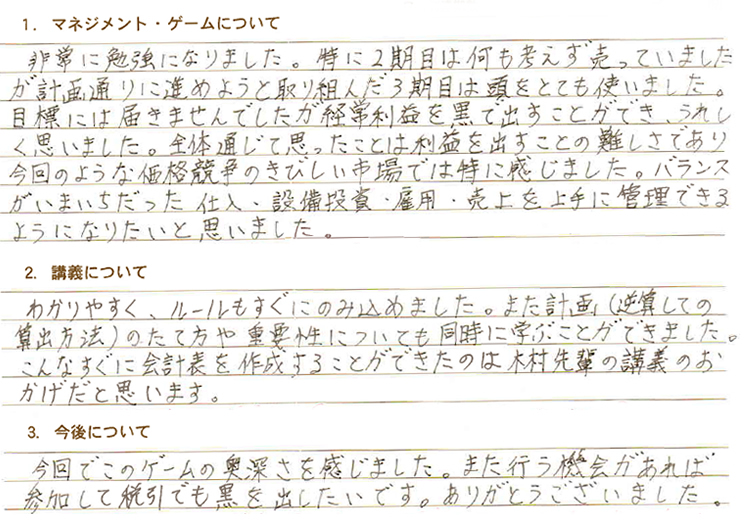 1. マネジメント・ゲームについて
非常に勉強になりました。特に2期目は何も考えず売っていました
が計画通りに進めようと取り組んだ3期目は頭をとても使いました。
目標には届きませんでしたが経常利益を黒で出すことができ、うれし
く思いました。全体通じて思ったことは利益を出すことの難しさであり
今回のような価格競争のきびしい市場では特に感じました。バランス
がいまいちだった仕入・設備投資・雇用・売上を上手に管理できる
ようになりたいと思いました。
2. 講義について
わかりやすく、ルールもすぐにのみ込めました。また計画(逆算しての
算出方法)のたて方や重要性についても同時に学ぶことができました。
こんなすぐに会計表を作成することができたのは木村先輩の講義のお
かげだと思います。
3. 今後について
今回でこのゲームの奥深さを感じました。また行う機会があれば
参加して税引でも黒を出したいです。ありがとうございました。